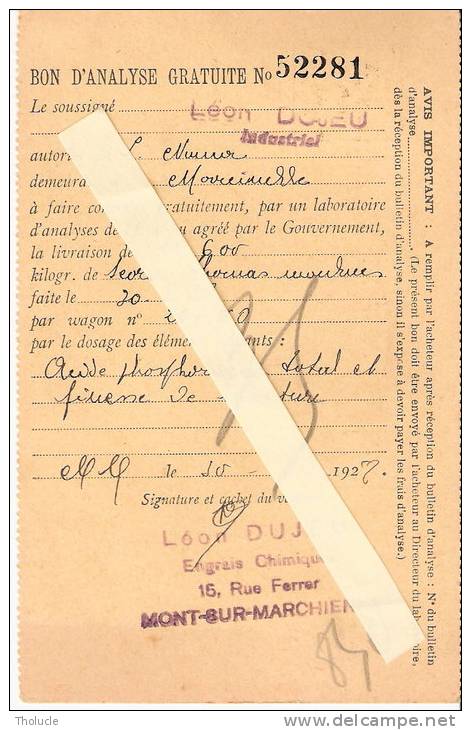 BON D'ANALYSE GRATUITE No 52281
Le soussigné Léon DUJEU
Industriel
autori
demeura Marcinelle
à faire con ratuitement, par un laboratoire
d'analyses de u agréé par le Gouvernement,
la livraison de 600
kilogr. de Scor homas moulues
faite le 20
par wagon n° 2 0
par le dosage des élémen ants :
Acide phosphor total et
finesse de ture
M M le 10 - 1927.
Signature et cachet du v
Léon DUJ
Engrais Chimiqu
15, Rue Ferrer
MONT-SUR-MARCHIEN
AVIS IMPORTANT : A remplir par l'acheteur après réception du bulletin d'analyse : N° du bulletin
d'analyse (Le présent bon doit être envoyé par l'acheteur au Directeur du lab oire,
dès la réception du bulletin d'analyse, sinon il s'expose à devoir payer les frais d'analyse.)
Tholucle
delcampe.net